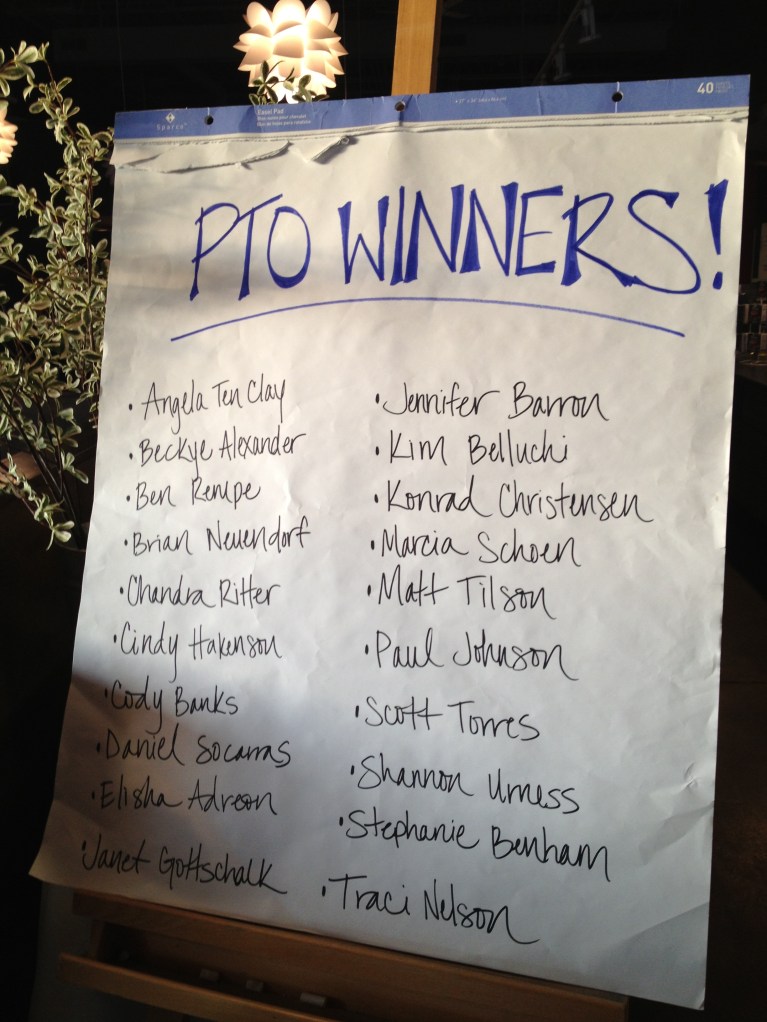 Sparco
Easel Pad
40
PTO WINNERS!
• Angela Ten Clay
• Beckye Alexander
• Ben Rempe
• Brian Neuendorf
• Chandra Ritter
• Cindy Hakenson
• Cody Banks
• Daniel Socarras
• Elisha Adreon
• Janet Gottschalk
• Jennifer Barron
• Kim Belluchi
• Konrad Christensen
• Marcia Schoen
• Matt Tilson
• Paul Johnson
• Scott Torres
• Shannon Urness
• Stephanie Benham
• Traci Nelson